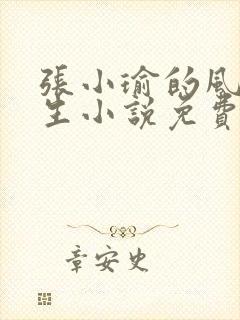 張小瑜的風
生小說免費
章安史